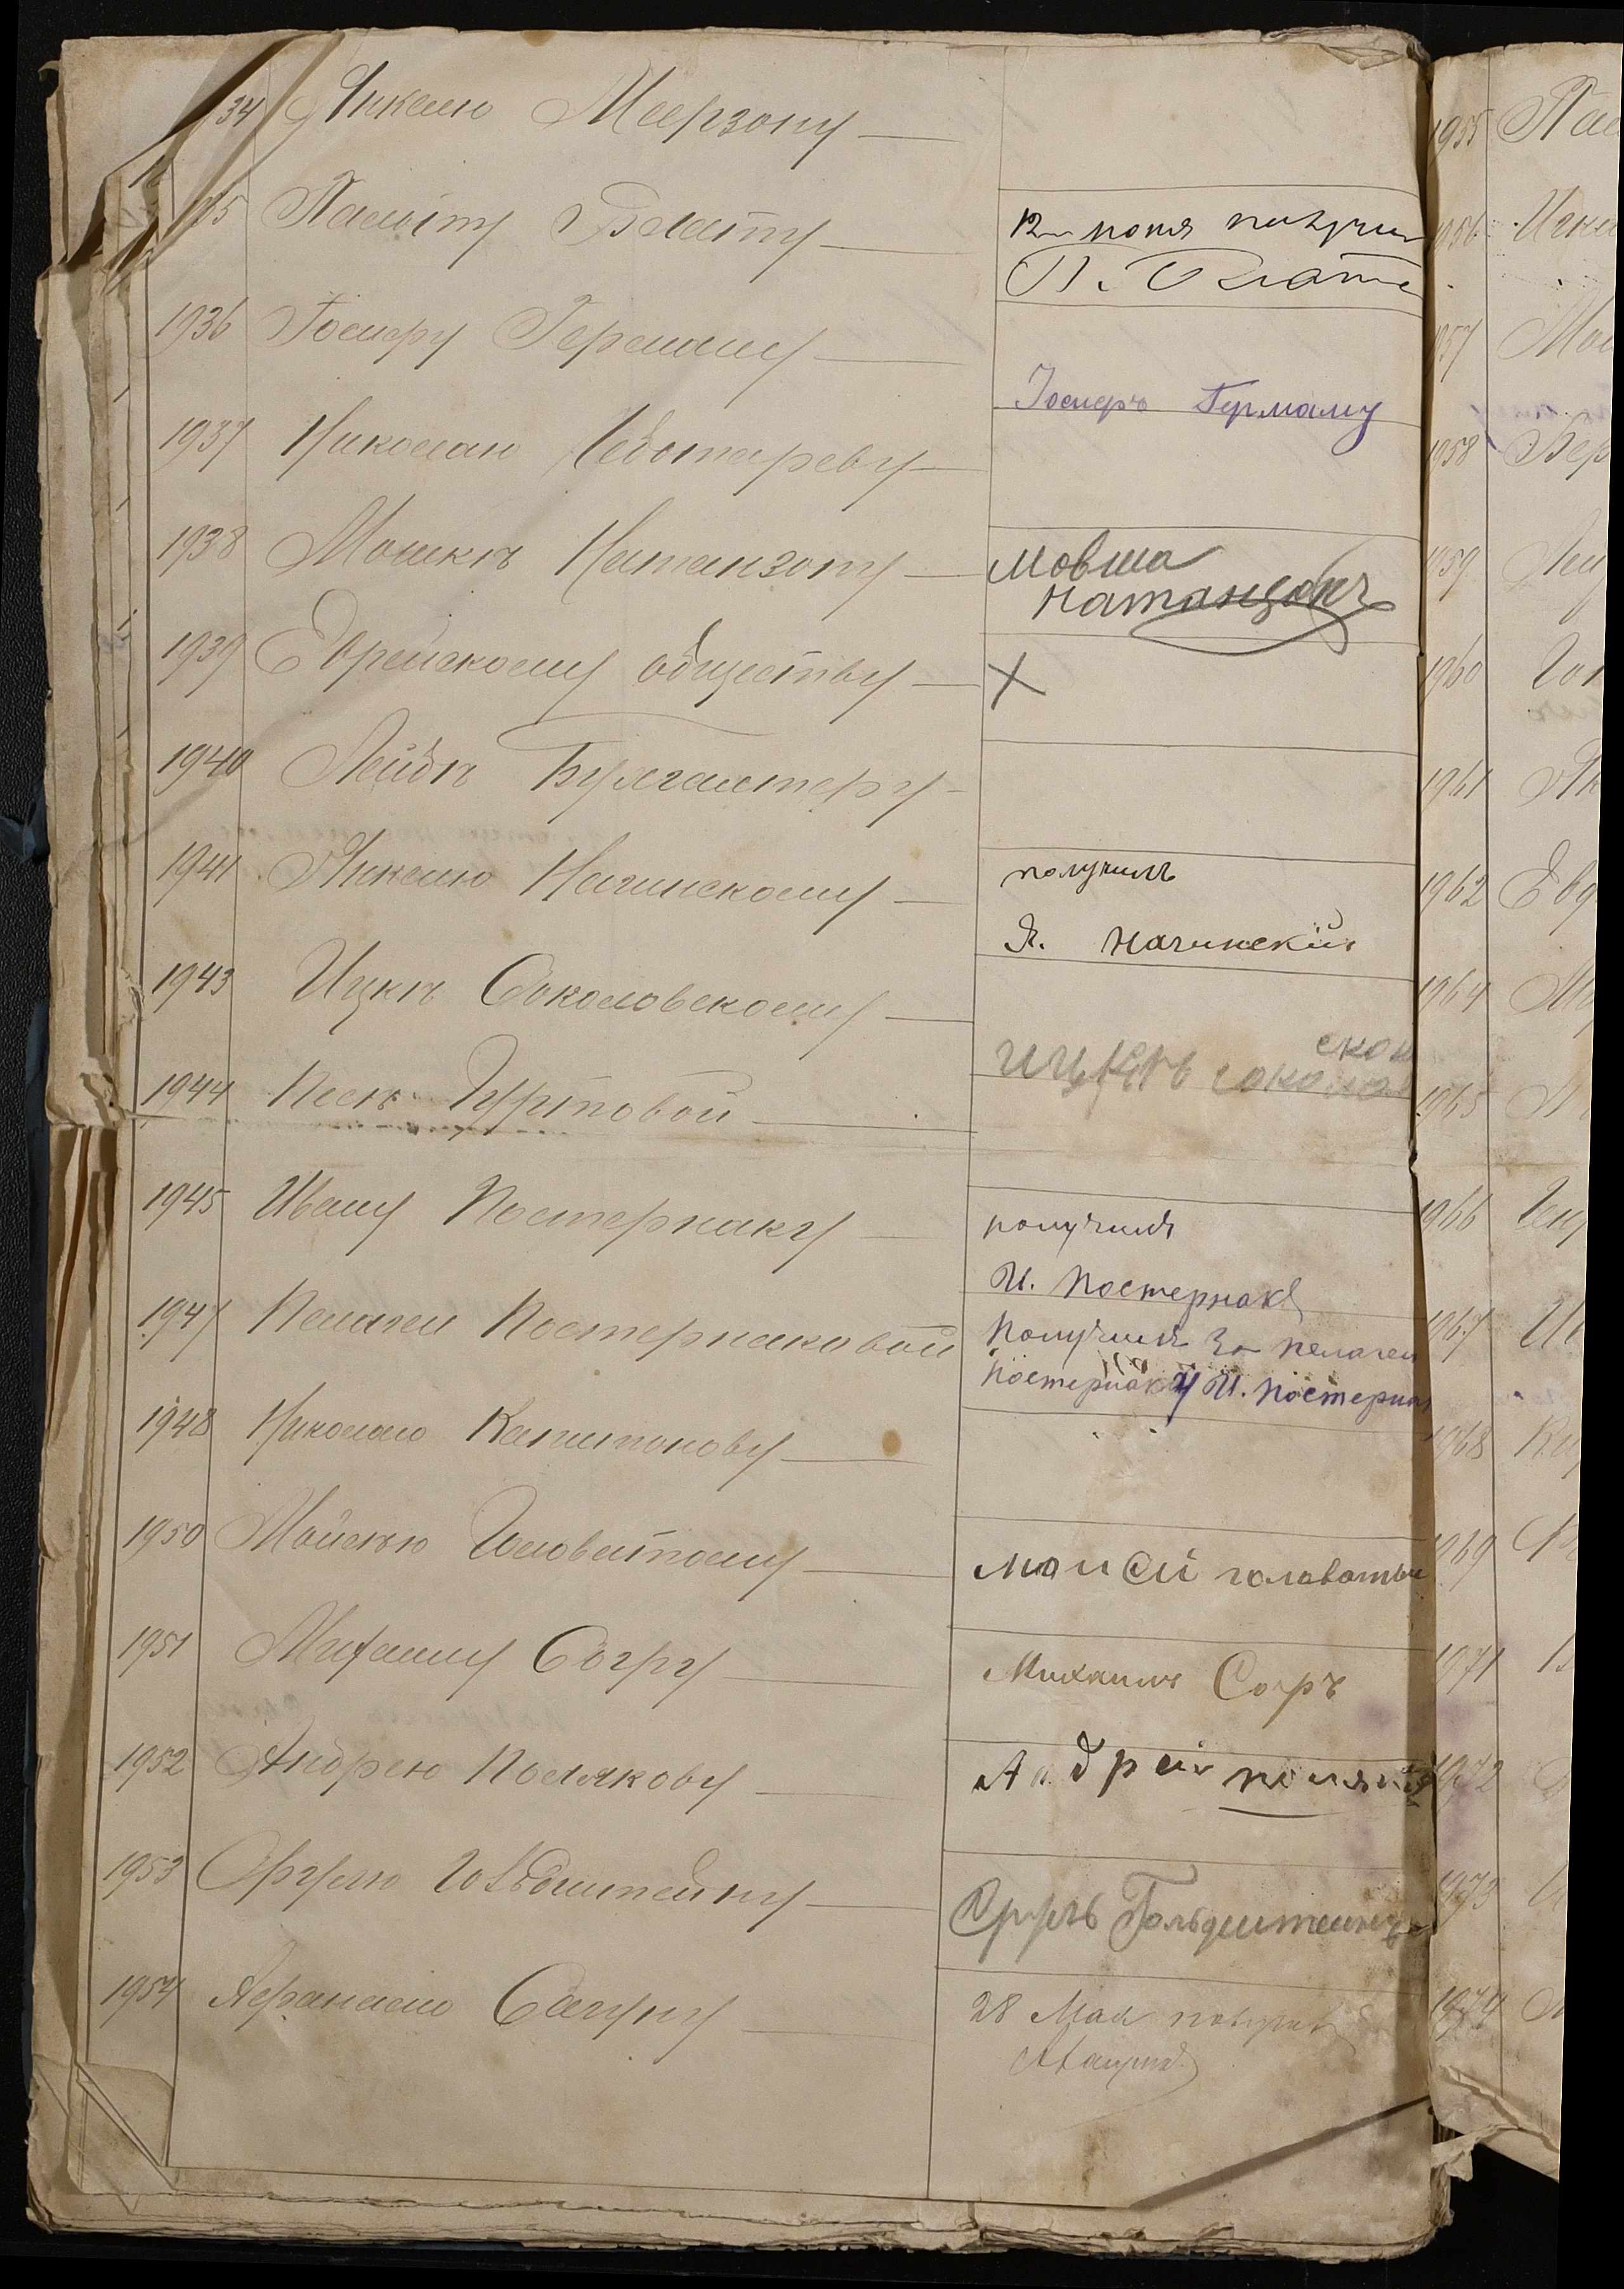 34 Янкелю Меерзону
35 Пальту Блату
12 июня получил
П. Блатъ
1936 Госперу Герману
Госперъ Герману
1937 Николаю Чеботареву
1938 Мошкѣ Натанзону
Мовша
Натанзонъ
1939 Еврейскому обществу
X
1940 Лейбѣ Бухгалтеру
1941 Янкелю Нагинскому
получилъ
Я. Нагинскій
1943 Ицкѣ Соколовскому
Ицкъ Соколов
ском
1944 Песѣ Гуртовой
1945 Ивану Постернаку
получилъ
И. Постернакъ
1947 Пелагеи Постернаковой
получилъ За пелагеи
постернаку И. Постернак
1948 Николаю Капитонову
1950 Мойсѣю Головатому
Моисей головатый
1951 Михаилу Согру
Михаилъ Согръ
1952 Андрею Полякову
Андрей поляков
1953 Срулю Гольдштейну
Сруль Гольдштейнъ
1954 Афанасию Сацуну
28 Мая получил
1955
1956
1957
1958 Бер
1959
1960
1961 Як
1962 Евд
1964
1965
1966
1967
1968
1969
1971
1972
1973
1974